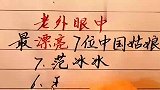 老外眼中
最漂亮7位中国姑娘
7.范冰冰
6.